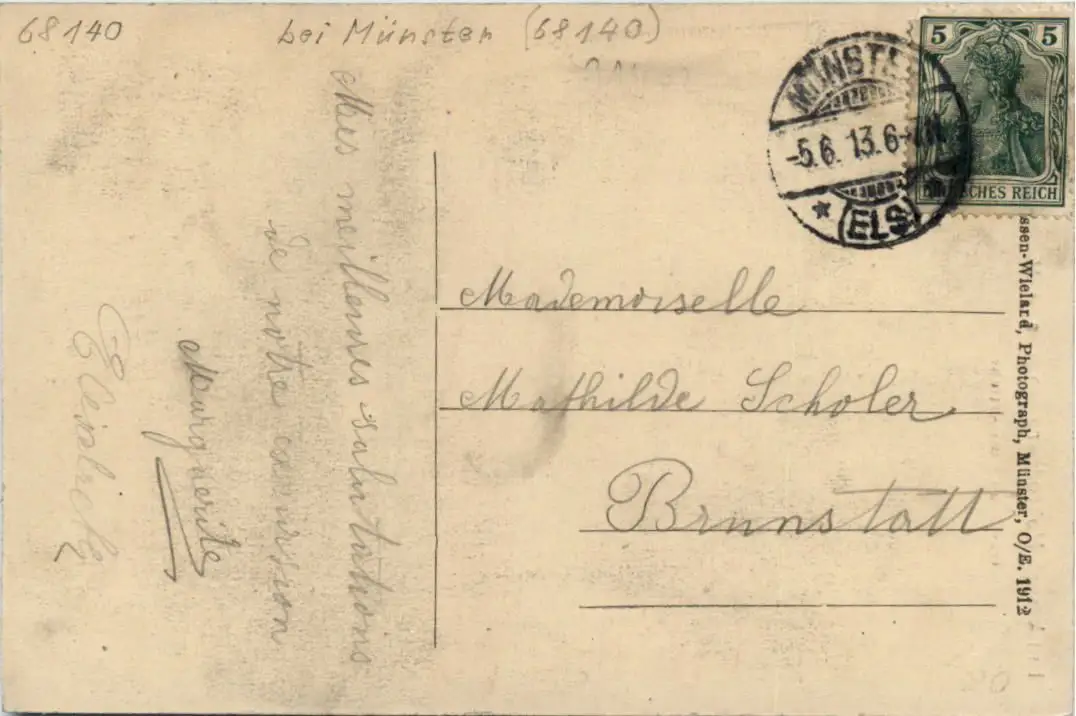 68140 bei Münster (68140)
5 5
DEUTSCHES REICH
MÜNSTER
-5.6.13.6-7N
* (ELS)
Mes meilleures salutations
de notre excursion
Marguerite
Mademoiselle
Mathilde Scholer
Brunstatt
ssen-Wieland, Photograph, Münster, O/E. 1912